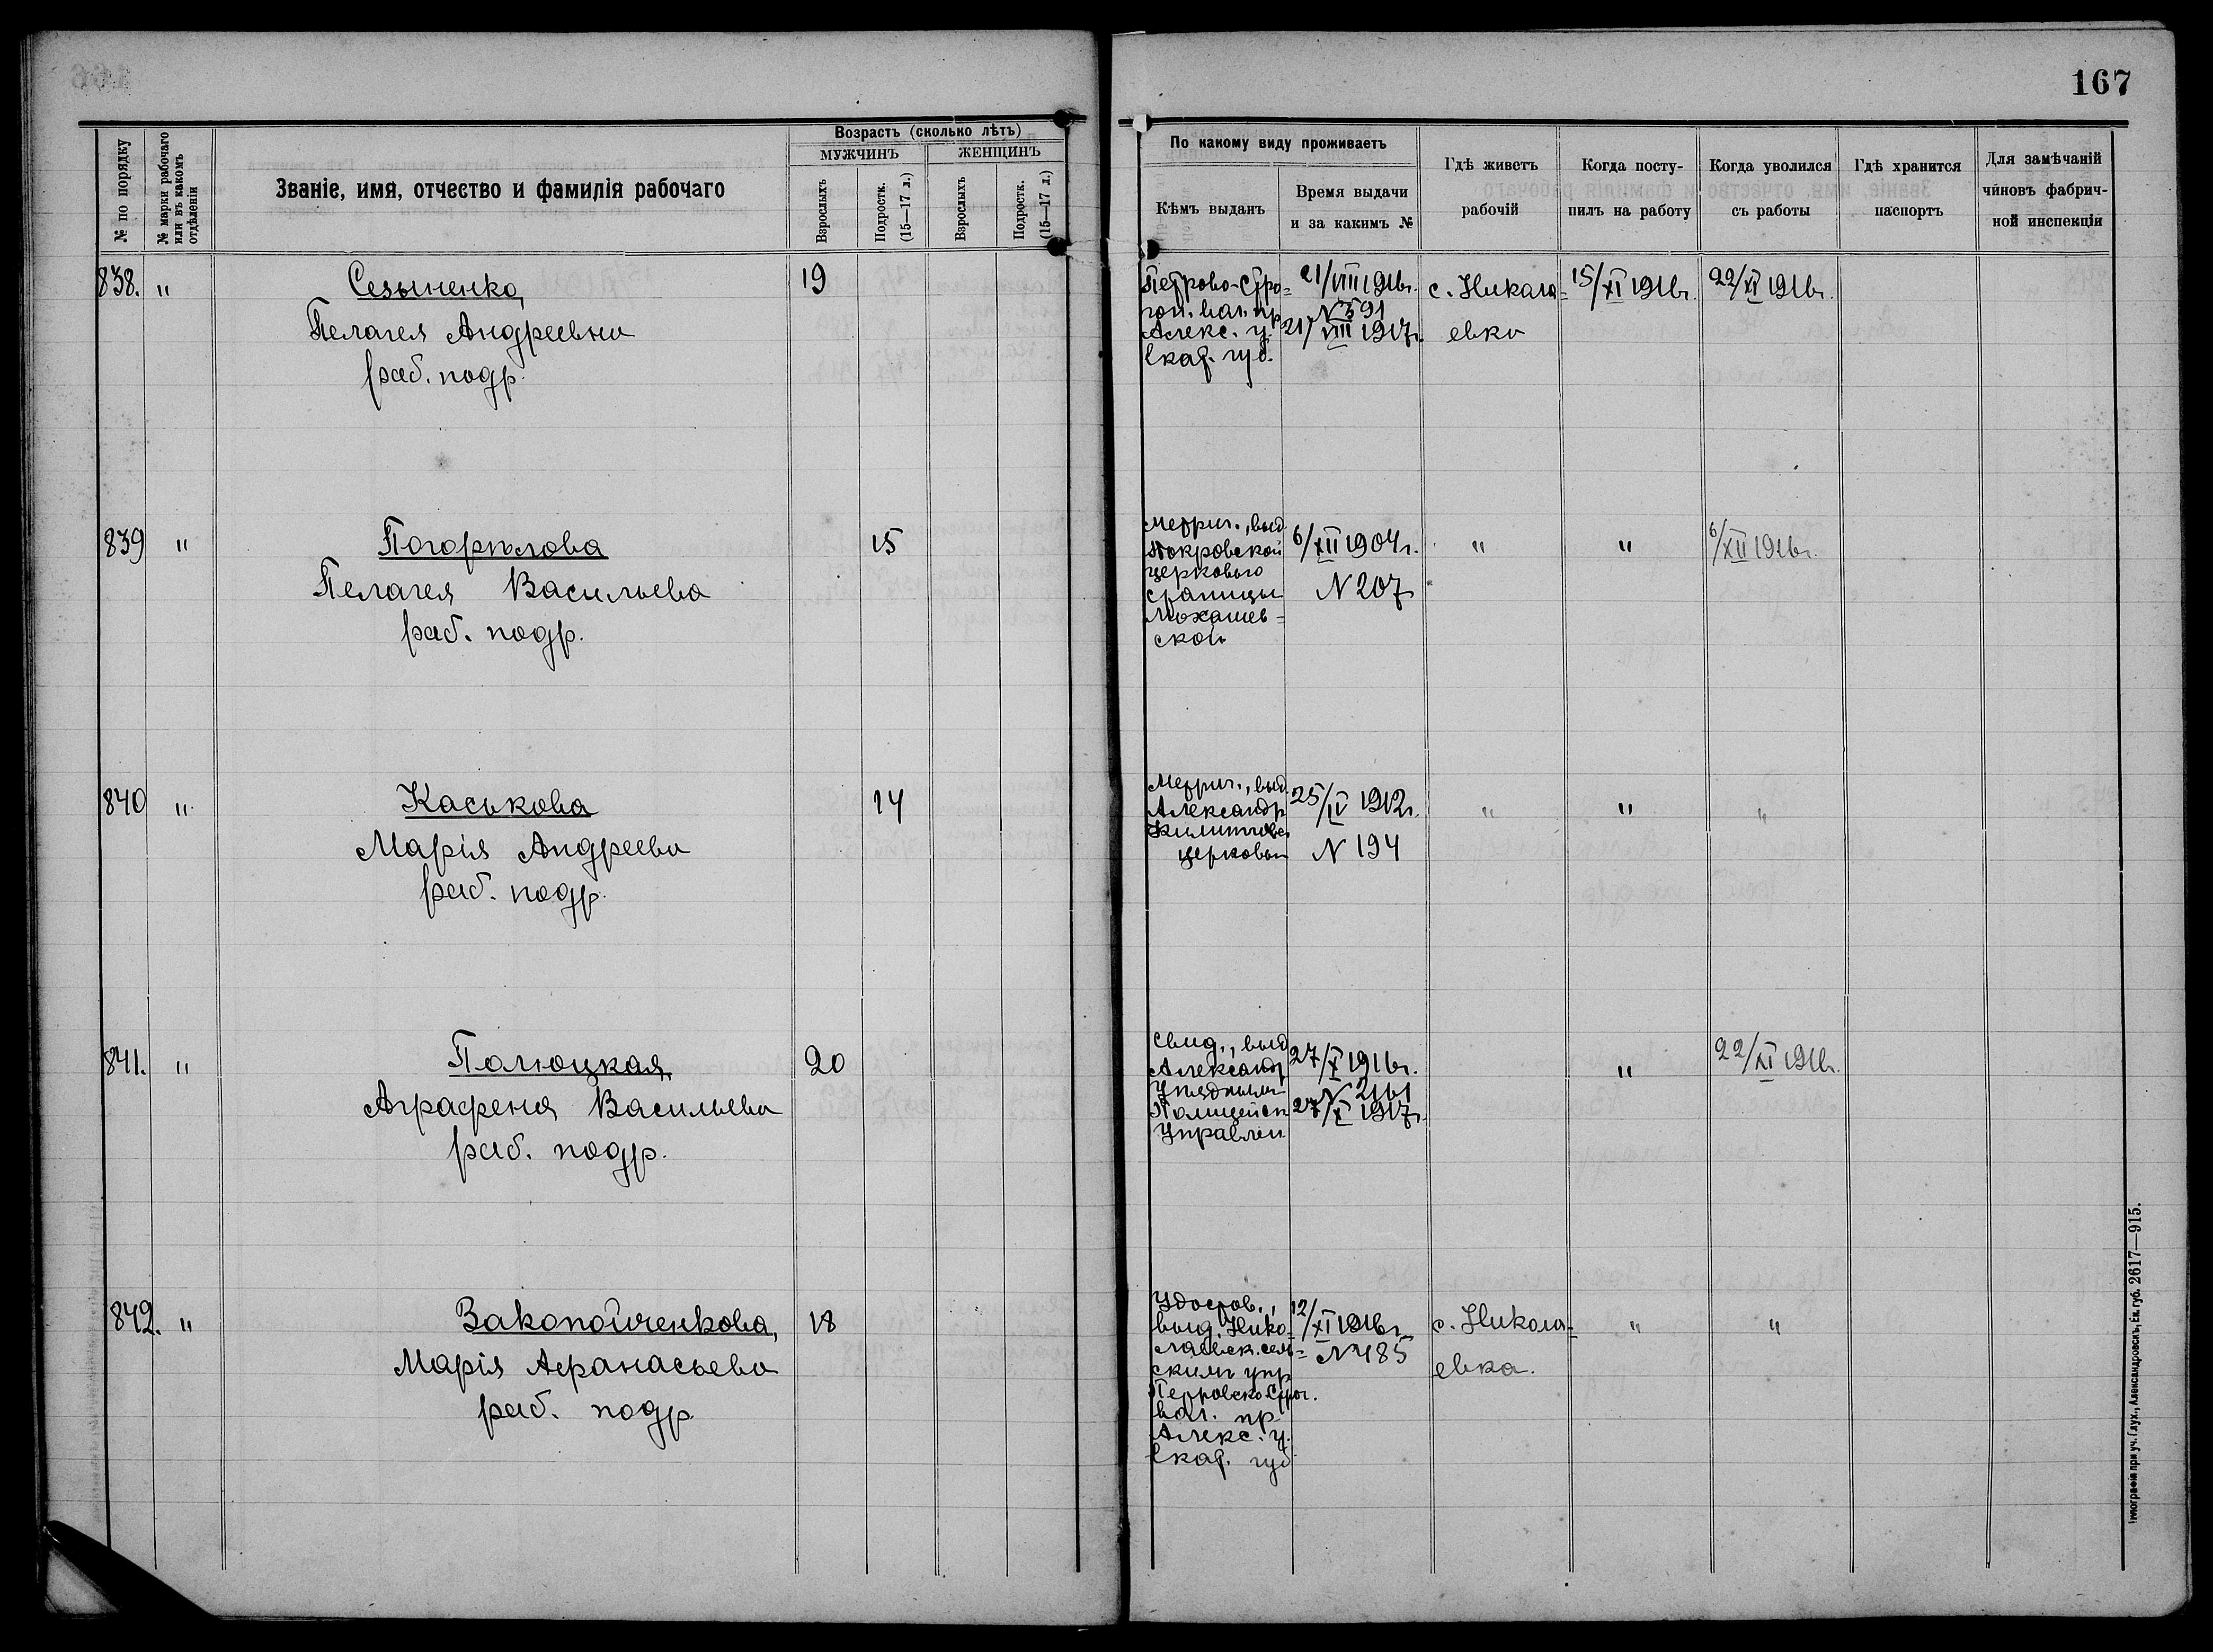 167
№ по порядку
№ марки рабочаго
или въ какомъ
отдѣленіи
Званіе, имя, отчество и фамилія рабочаго
Возрастъ (сколько лѣтъ)
мужчинъ
женщинъ
Взрослыхъ
Подростк.
(15—17 л.)
Взрослыхъ
Подростк.
(15—17 л.)
По какому виду проживаетъ
Кѣмъ выданъ
Время выдачи
и за какимъ №
Гдѣ живетъ
рабочій
Когда посту-
пилъ на работу
Когда уволился
съ работы
Гдѣ хранится
паспортъ
Для замѣчаній
чиновъ фабрич-
ной инспекціи
838. "
Сезыненко,
Пелагея Андреевна
раб. подр.
19
Петрово-Стро=
гон. вол. пр
Алекс. у.
Екат. губ.
21/VIII 1916г.
N 591
21/VIII 1917г.
с. Никола=
евка
15/XI 1916г.
22/XI 1916г.
839 "
Погорѣлова
Пелагея Васильева
раб. подр.
15
Метрич., выд.
Покровской
церковью
станицы
ской
6/XII 1904г.
N 207
"
"
6/XII 1916г.
840 "
Каськова
Марія Андреева
раб. подр.
14
Метрич., выд.
Александр
церковью
25/IV 1912г.
N 194
"
"
"
841. "
Полюцкая,
Аграфена Васильева
раб. подр.
20
Свид., выд
Александр
Уѣздным
Полицейск
Управлен.
27/X 1916г.
N 2161
27/X 1917г.
"
22/XI 1916г.
842. "
Закопойченкова,
Марія Афанасьева
раб. подр
18
Удостов.,
выд. Нико=
лаевск. сель=
ским упр
Петровско-Строг.
вол. пр
Алекс. у.
Екат. губ
12/XI 1916г.
N 485
с. Никола=
евка.
"
"
Типографія при уч. Глух., Александровскъ, Ек. губ. 2617—915.